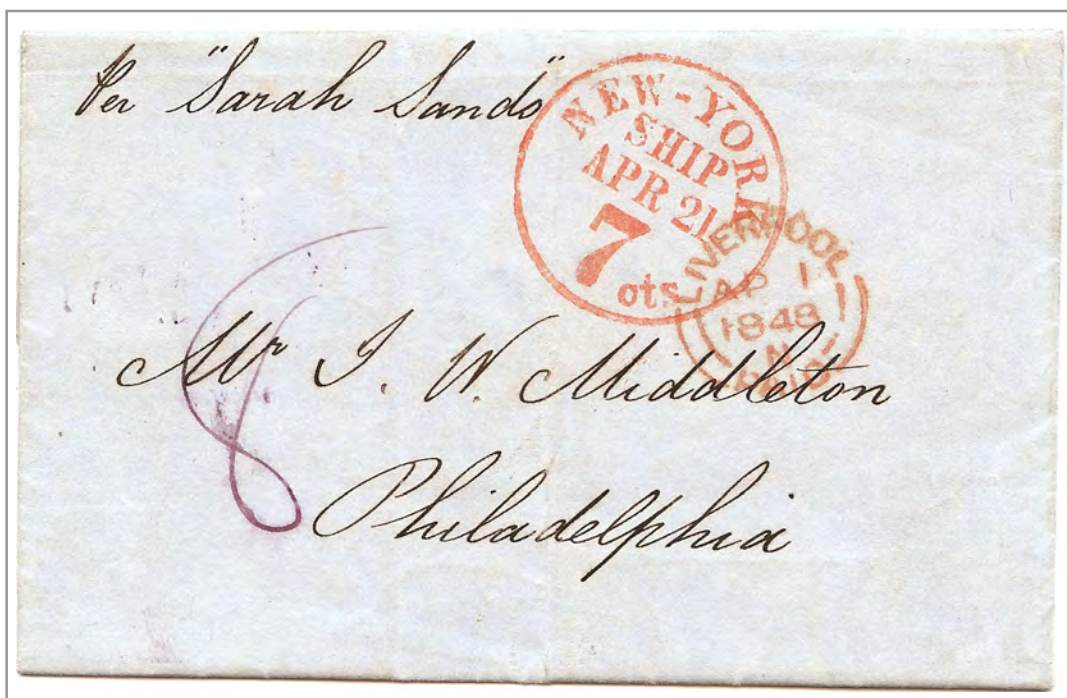 Per "Sarah Sands"
NEW-YORK
SHIP
APR 21
7 cts
LIVERPOOL
AP 1
1848
8
Mr J. W. Middleton
Philadelphia